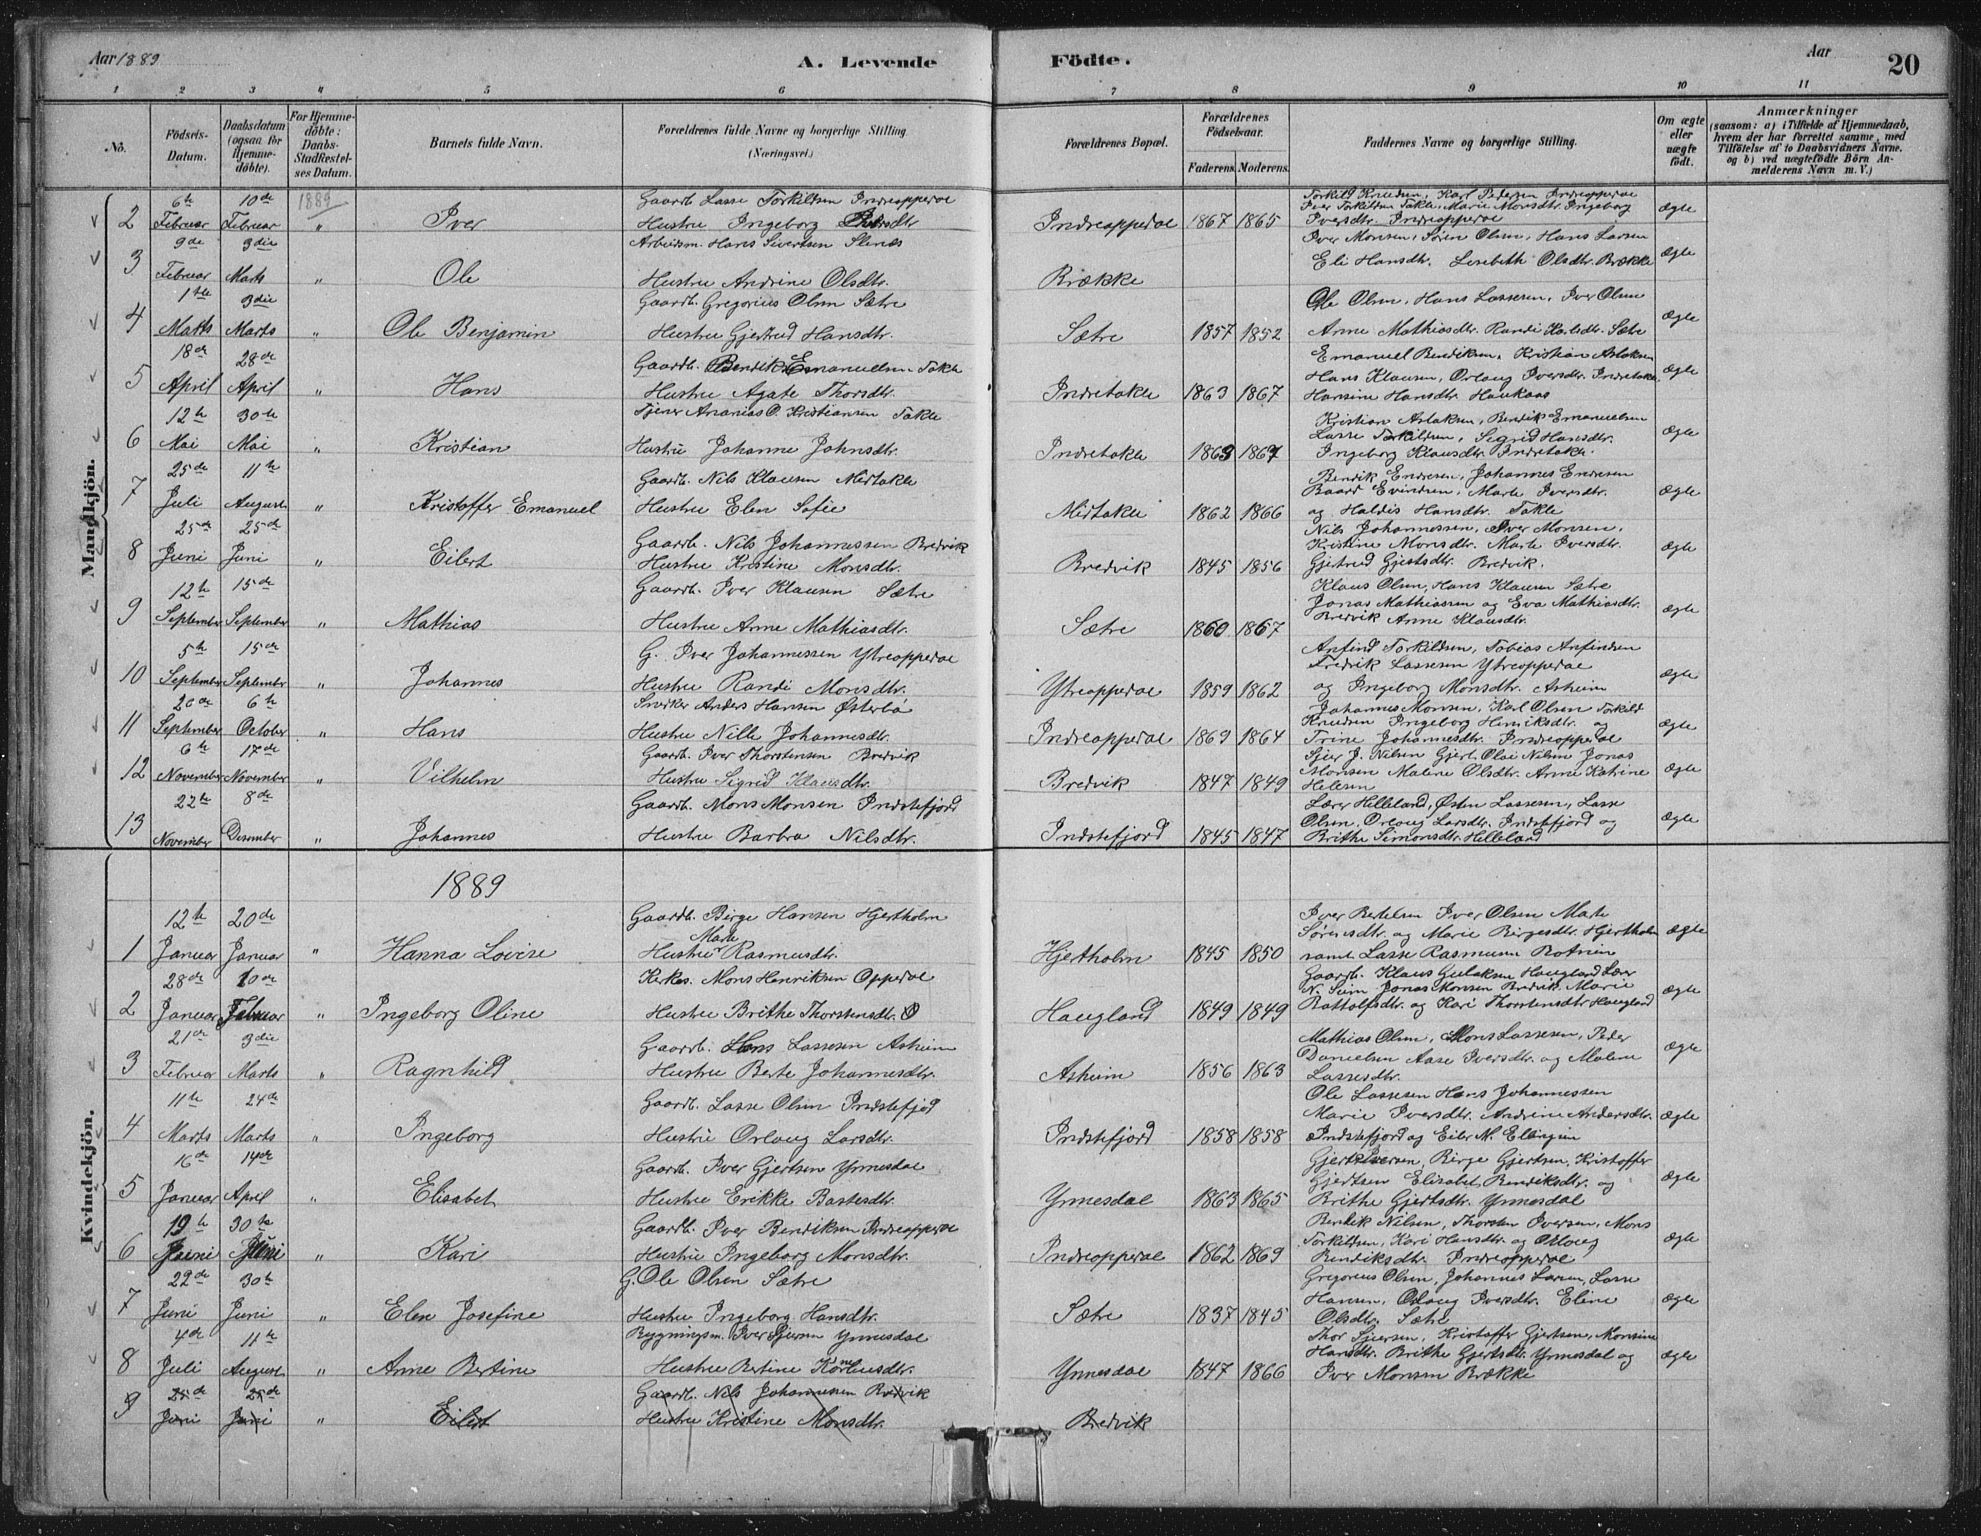 Aar 1889 A. Levende Födte. Aar 20
1 2 3 4 5 6 7 8 9 10 11
No. Födsels-Datum. Daabsdatum (ogsaa for Hjemmedöbte). For Hjemmedöbte: Daabs-Stadfæstelses Datum. Barnets fulde Navn. Forældrenes fulde Navne og borgerlige Stilling. (Næringsvei.) Forældrenes Bopæl. Forældrenes Födselsaar. Faderens Moderens Faddernes Navne og borgerlige Stilling. Om ægte eller uægte födt. Anmærkninger (saasom: a) i Tilfælde af Hjemmedaab, hvem der har forrettet samme, med Tilföielse af to Daabsvidners Navne, og b) ved uægtefödte Börn Anmelderens Navn m. V.)
Mandkjön.
1889
2 6te Februar 10de Februar " Iver Gaardb. Lasse Torkildsen Indreopperdal
Hustru Ingeborg Indreopperdal 1867 1865 Torkild Knudsen, Karl Pedersen Indreopperdal
Iver Torkildsen Takle, Marie Monsdtr. Ingeborg
Iversdtr. Indreopperdal ægte
3 9de Februar 3die Marts " Ole Arbeidsm. Hans Sivertsen
Hustru Andrine Olsdtr. Brække Iver Monsen, Sören Olsen, Hans Larsen
Eli Hansdtr. Lisebeth Olsdtr. Brække ægte
4 1ste Marts 3die Marts " Ole Benjamin Gaardb. Gregorius Olsen Sætre
Hustru Gjertrud Hansdtr. Sætre 1857 1852 Ole Olsen, Hans Lassesen, Iver Olsen
Anne Mathiasdtr. Randi Karlsdtr. Sætre ægte
5 18de April 28de April " Hans Gaardb. Bendik Emanuelsen Takle
Hustru Agate Thorsdtr. Indretakle 1863 1867 Emanuel Bendiksen, Kristian Aslaksen
Hans Klausen, Orloug Iversdtr. Indretakle,
Hansine Hansdtr. Haukaas ægte
6 12te Mai 30te Mai " Kristian Tjener Ananias O. Kristiansen Takle
Hustru Johanne Johnsdtr. Indretakle 1863 1867 Kristian Aslaksen, Bendik Emanuelsen
Lasse Torkildsen, Sigrid Hansdtr.
Ingeborg Klausdtr. Indretakle. ægte
7 25de Juli 11te August " Kristoffer Emanuel Gaardb. Nils Klausen Midtakle
Hustru Elen Sofie Midtakle 1862 1866 Bendik Endresen, Johannes Endresen
Baard Evindsen, Marte Iversdtr.
og Haldis Hansdtr. Takle ægte
8 25de Juni 25de Juni " Eilert Gaardb. Nils Johannessen Bredvik
Hustru Kristine Monsdtr. Bredvik 1845 1856 Nils Johannessen, Iver Monsen,
Kristine Monsdtr. Marte Iversdtr.
Gjertrud Gjertsdtr. Bredvik. ægte
9 12te September 15de September " Mathias Gaardb. Iver Klausen Sætre
Hustru Anne Mathiasdtr. Sætre 1860 1867 Klaus Olsen, Hans Klausen Sætre
Jonas Mathiassen og Eva Mathiasdtr.
Bredvik Anne Klausdtr. ægte
10 5te September 15de September " Johannes G. Iver Johannessen Ytreopperdal
Hustru Randi Monsdtr. Ytreopperdal 1859 1862 Anfind Torkildsen, Tobias Anfindsen
Fredrik Lassesen Ytreopperdal
og Ingeborg Monsdtr. Asheim ægte
11 20de September 6te October " Hans Snidker Anders Hansen Østerbö
Hustru Nille Johannesdtr. Indreopperdal 1869 1864 Johannes Monsen, Karl Olsen Torkild
Knudsen Ingeborg Henriksdtr. og
Trine Johannesdtr. Indreopperdal ægte
12 6te November 17de November " Vilhelm Gaardb. Iver Thorstensen Bredvik
Hustru Sigrid Klausdtr. Bredvik 1847 1849 Sjier J. Nilsen Gjert Olai Nilsen Jonas
Monsen Malene Olsdtr. Anne Katrine
Hellesen ægte
13 22te November 8de Desember " Johannes Gaardb. Mons Monsen Indstefjord
Hustru Barbra Nilsdtr. Indstefjord 1845 1847 Lærer Helleland, Østen Lassesen, Lasse
Olsen, Orloug Larsdtr. Indstefjord og
Brithe Simonsdtr. Helleland ægte
Kvindekjön.
1889
1 12te Januar 20de Januar " Hanna Lovise Gaardb. Birge Hansen Hjertholm
Hustru Marte Rasmusdtr. Hjertholm 1845 1850 Iver Bertelsen Iver Olsen Marte
Sörensdtr. og Marie Birgesdtr. Hjertholm
samt Lasse Rasmusen ægte
2 28de Januar 10de Februar " Ingeborg Oline Kirkes. Mons Henriksen Opperdal
Hustru Brithe Thorstensdtr. Haugland 1849 1849 Gaardb. Klaus Gulaksen Haugland Lærer
N. Seim Jonas Monsen Bredvik Marie
og Kari Thorstensdtr Haugland ægte
3 21de Februar 3die Marts " Ragnhild Gaardb. Hans Lassesen Asheim
Hustru Berte Johannesdtr. Asheim 1856 1863 Mathias Olsen, Mons Lassesen, Peder
Danielsen Aase Iversdtr. og Malene
Lassesdtr. ægte
4 11te Marts 24de Marts " Ingeborg Gaardb. Lasse Olsen Indstefjord
Hustru Orloug Larsdtr. Indstefjord 1858 1858 Ole Lassesen Hans Johannessen
Marie Iversdtr. Andrine Andersdtr.
Indstefjord og Eiler M. Ellingsen ægte
5 16de Januar 14de April " Elisabet Gaardb. Iver Gjertsen Ynnesdal
Hustru Erikke Ynnesdal 1863 1865 Gjert Iversen, Birge Gjertsen, Kristoffer
Gjertsen Elisabet Bendiksdtr. og
Brithe Gjertsdtr. Ynnesdal ægte
6 19te Juni 30te Juni " Kari Gaardb. Iver Bendiksen Indreopperdal
Hustru Ingeborg Monsdtr. Indreopperdal 1862 1869 Bendik Nilsen, Thorsten Iversen, Mons
Torkildsen, Kari Hansdtr. og Orloug
Bendiksdtr. Indreopperdal ægte
7 22de Juni 30te Juni " Elen Josefine G. Ole Olsen Sætre
Hustru Ingeborg Hansdtr. Sætre 1837 1845 Gregorius Olsen, Johannes Larsen, Lasse
Hansen, Orloug Iversdtr. Eline
Olsdtr. Sætre ægte
8 4de Juli 11te August " Anne Bertine Bygningsm. Iver Sjursen Ynnesdal
Hustru Bertine Korneliusdtr. Ynnesdal 1847 1866 Thor Sjursen, Kristoffer Gjertsen, Monsine
Hansdtr. Brithe Gjertsdtr. Ynnesdal og
Iver Monsen Brække ægte
9 25de Juni 25de Juni " Eilert Gaardb. Nils Johannessen Bredvik
Hustru Kristine Monsdtr. Bredvik